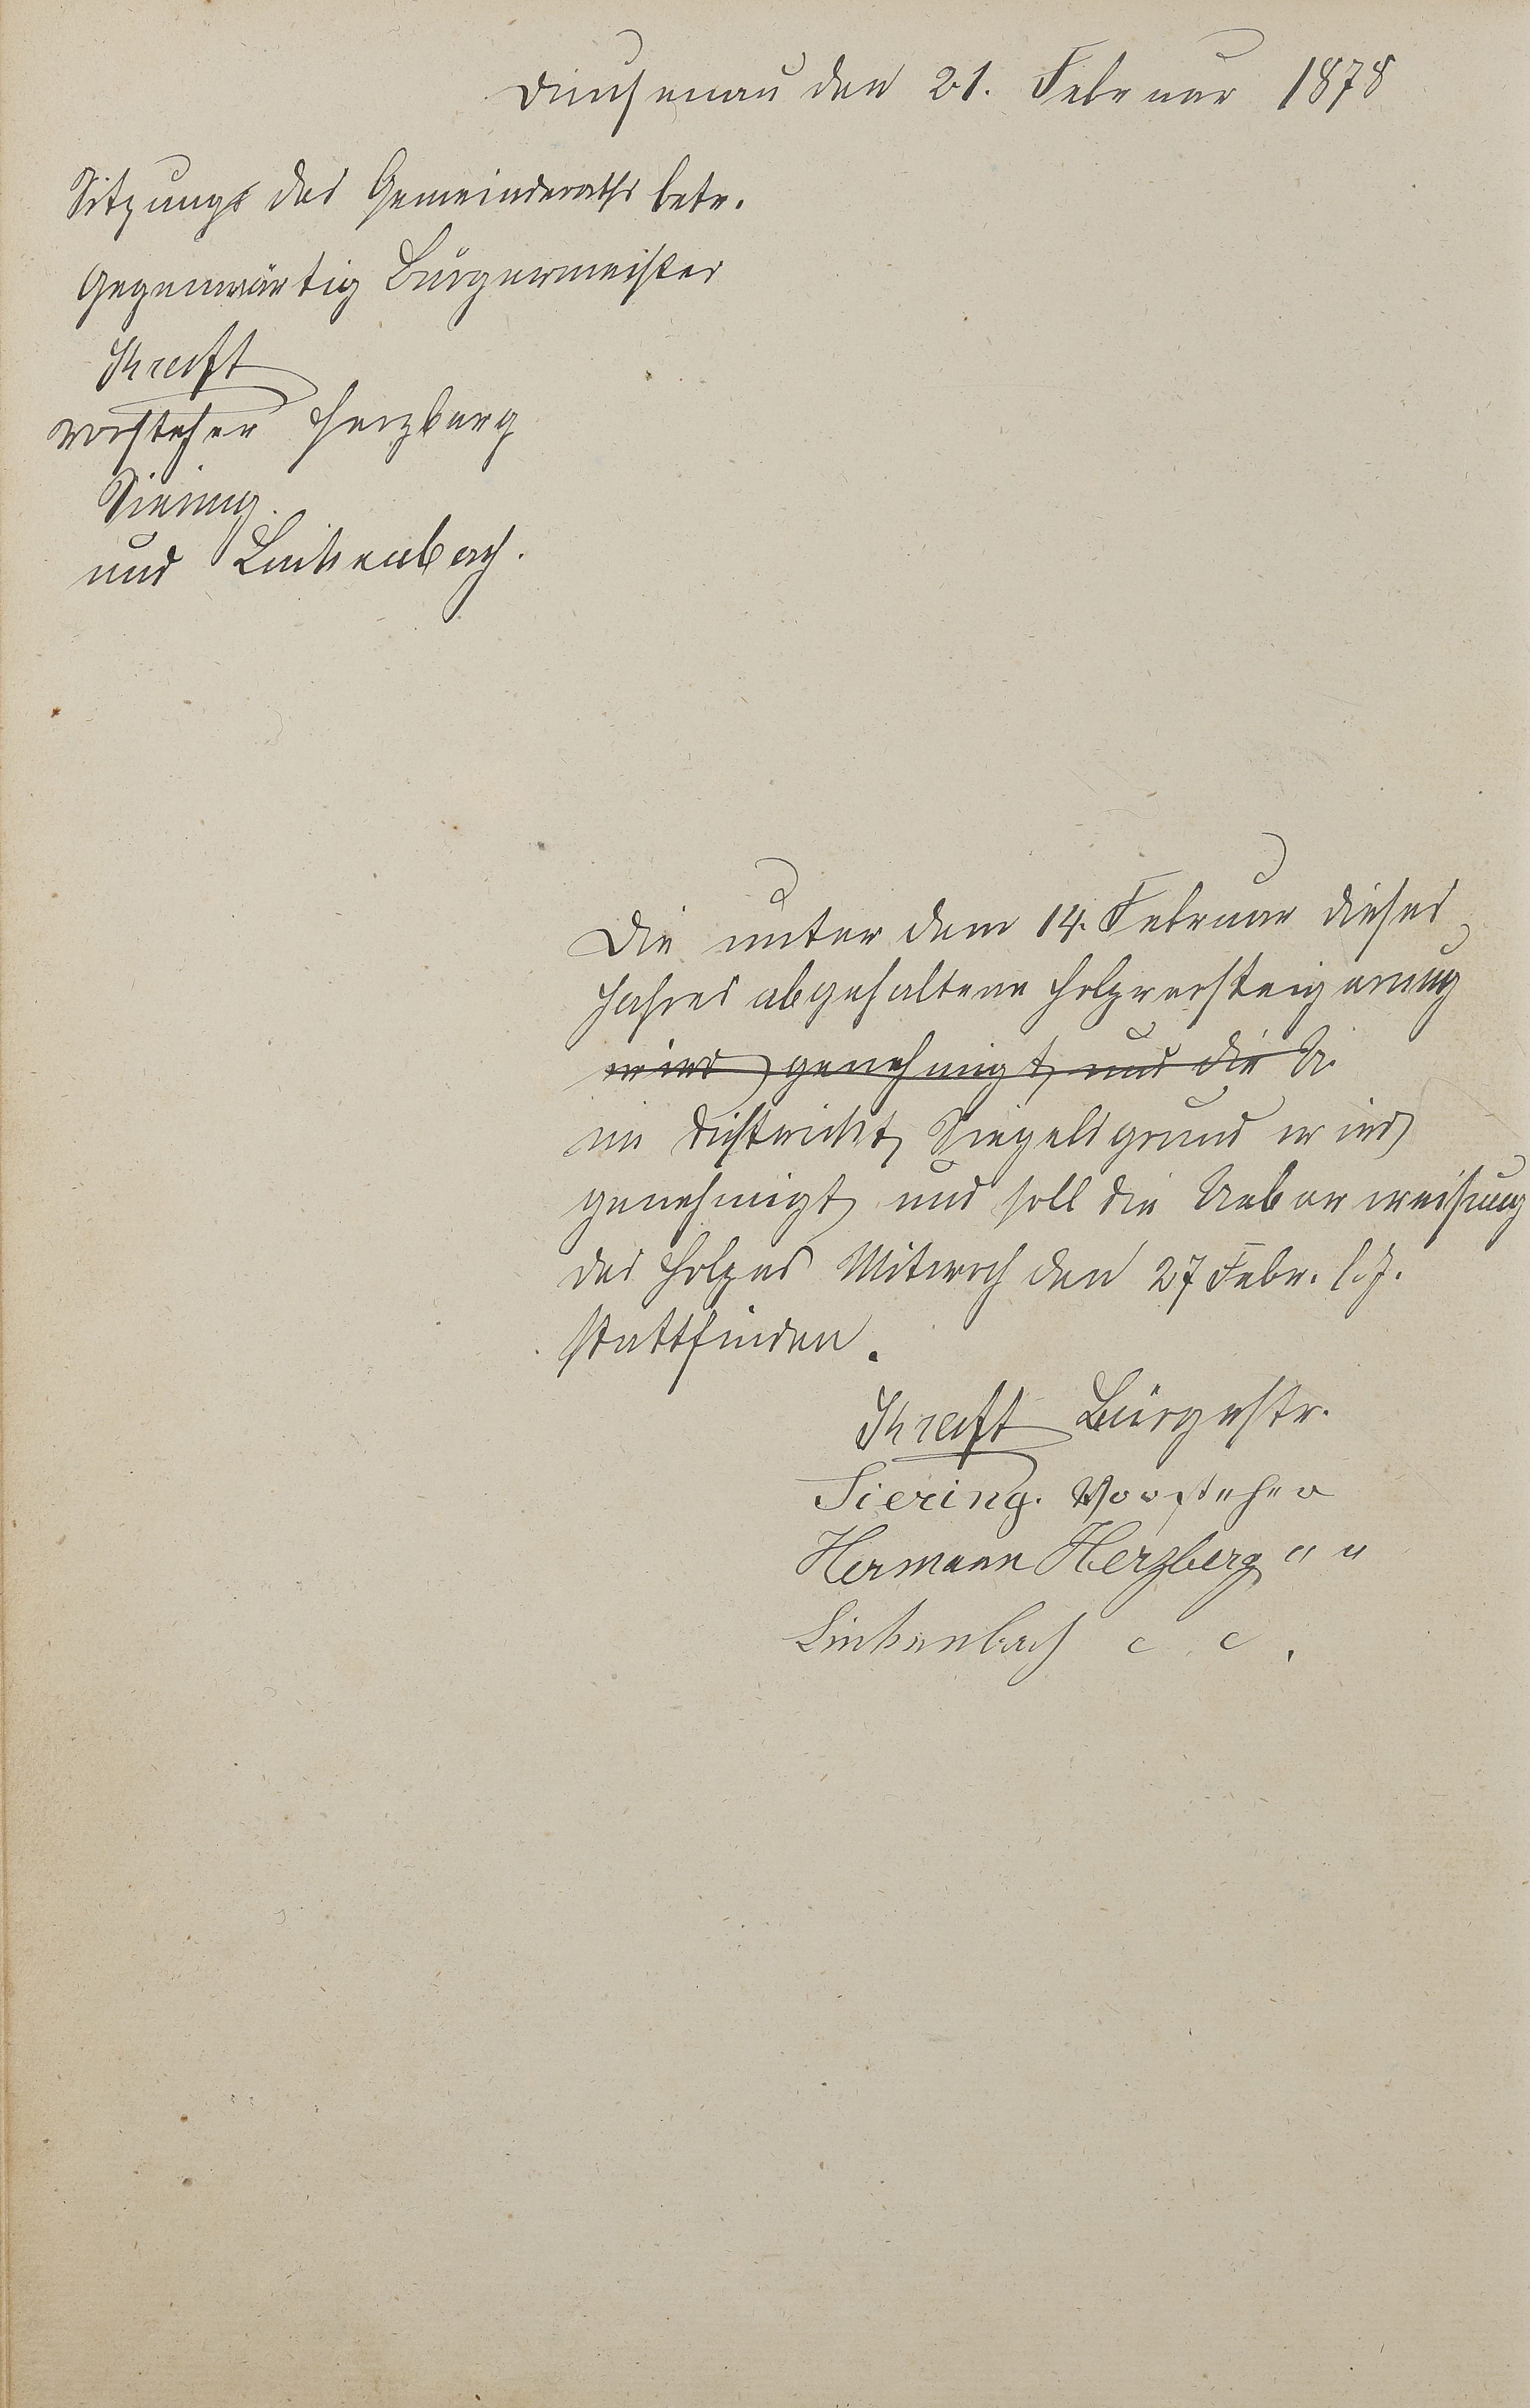 Dausenau den 21. Februar 1878
Sitzung des Gemeinderaths betr.
Gegenwärtig Bürgermeister
Kraft
Vorsteher Herzberg
Siering.
und Linkenbach.
Die unter dem 14. Februar dieses
Jahres abgehaltene Holzversteigerung
wird genehmigt und die U.
im District Siegelsgrund wird
genehmigt und soll die Ueberweisung
des Holzes Mitwoch den 27 Febr. l. J.
stattfinden.
Kraft Bürgrstr.
Siering. Vorsteher
Hermann Herzberg " "
Linkenbach " " .